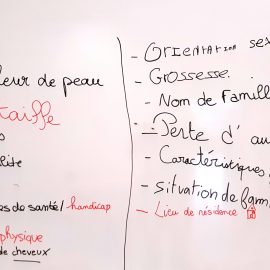 leur de peau
taille
lité
es de santé / handicap
physique
de cheveux
- Orientation sex
- Grossesse.
- Nom de Famill
- Perte d' au
- Caractéristiques
- situation de fam
- Lieu de résidence